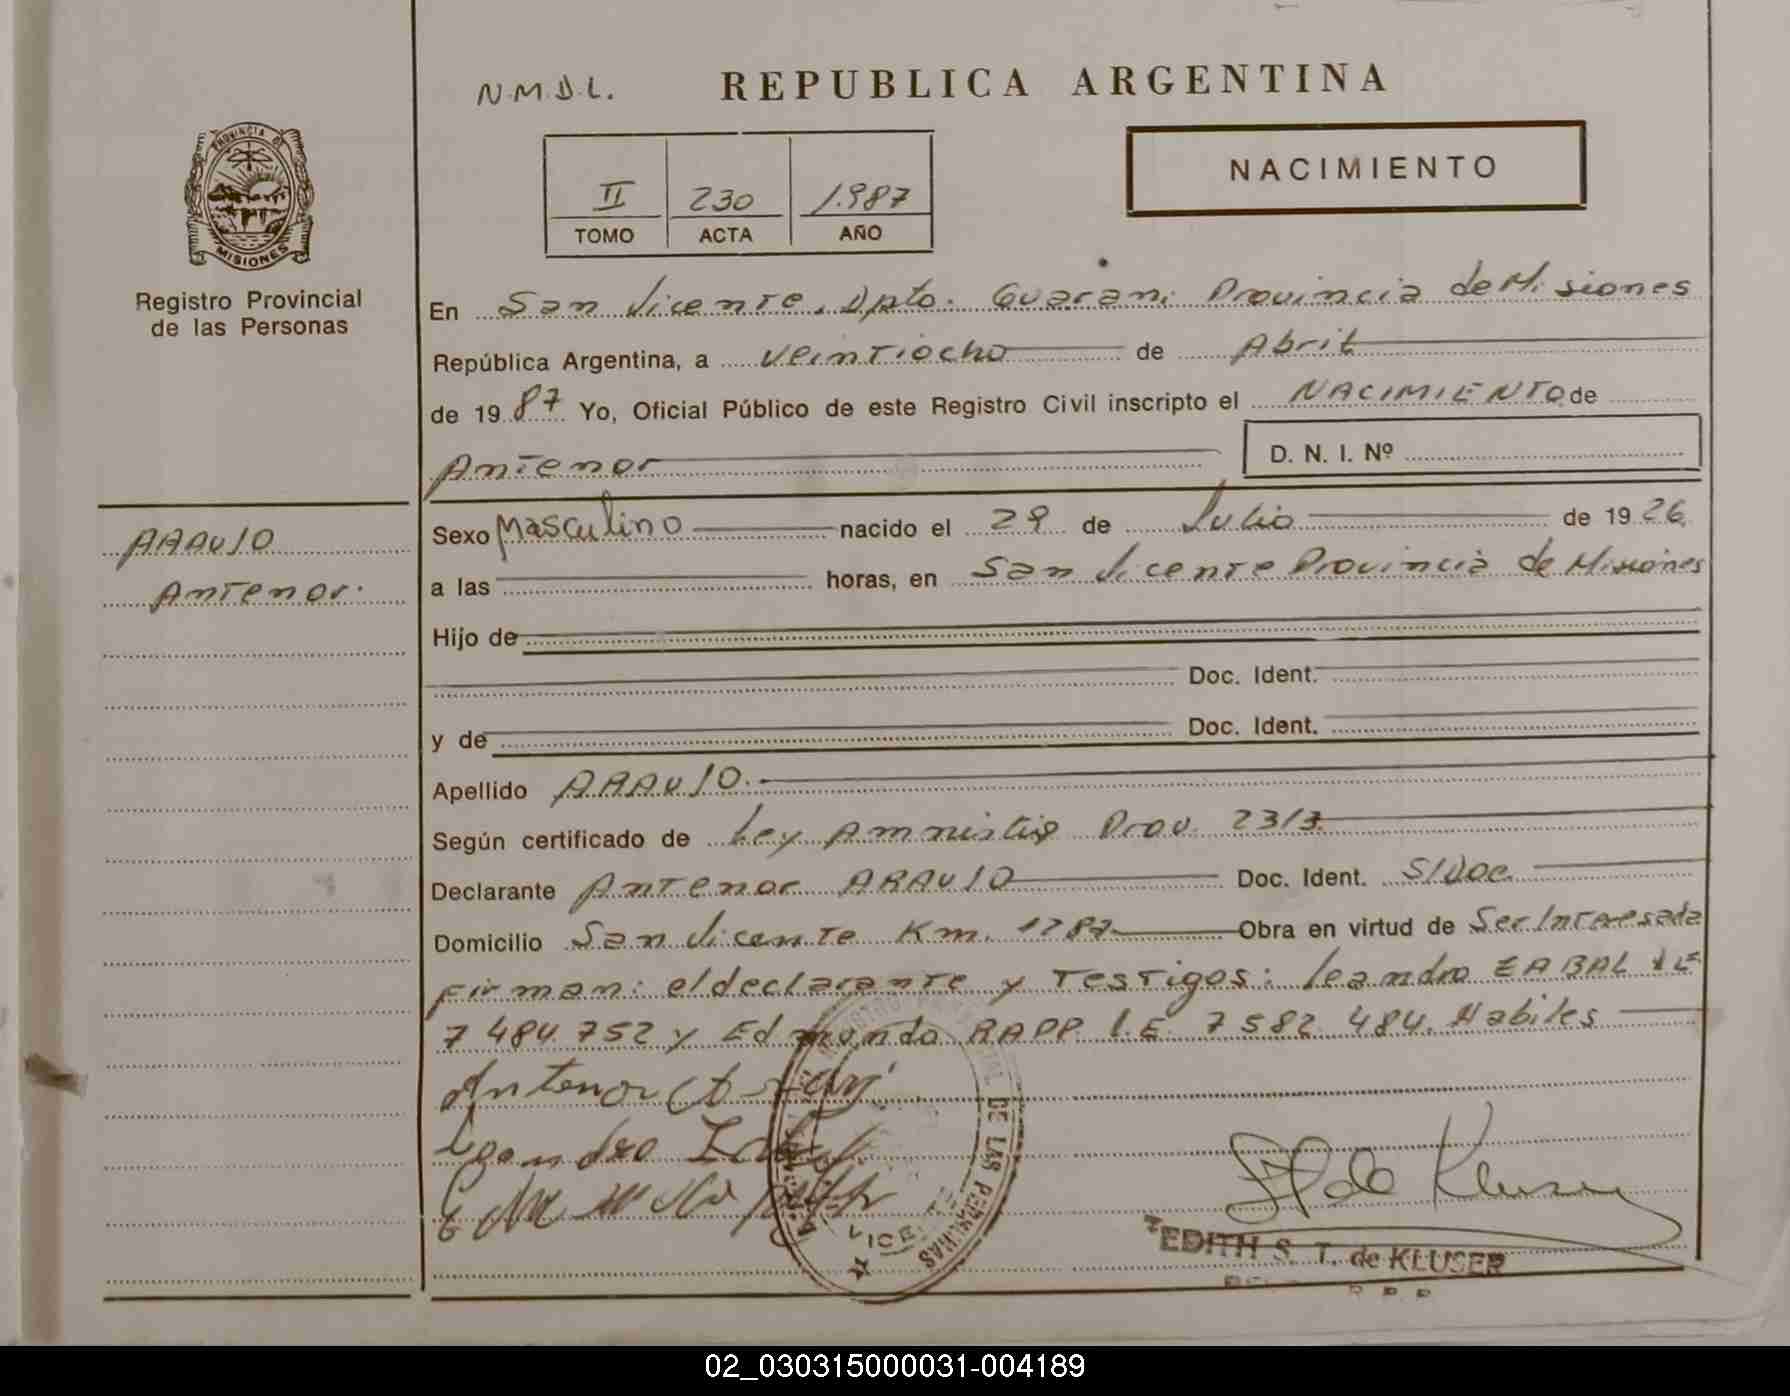 N.M.D.L.
REPUBLICA ARGENTINA
NACIMIENTO
II 230 1.987
TOMO ACTA AÑO
PROVINCIA DE
MISIONES
Registro Provincial
de las Personas
En San Vicente, Dpto. Guarani Provincia de Misiones
República Argentina, a veintiocho de Abril
de 1987 Yo, Oficial Público de este Registro Civil inscripto el NACIMIENTO de
Antenor D. N. I. Nº
ARAUJO
Antenor.
Sexo Masculino nacido el 29 de Julio de 1926
a las horas, en San Vicente Provincia de Misiones
Hijo de
Doc. Ident.
y de Doc. Ident.
Apellido ARAUJO.
Según certificado de Ley Amnistia Prov. 2313
Declarante Antenor ARAUJO Doc. Ident. S/Doc.
Domicilio San Vicente Km. 1282 Obra en virtud de Ser Interesada
Firman: el declarante y Testigos: Leandro ZABAL
7 484.752 y Edmundo RAPP L.E. 7582 484. Habiles
Antenor
Leandro
DE LAS PERSONAS
VICENTE
de Kluser
EDITH S. T. de KLUSER
02_030315000031-004189